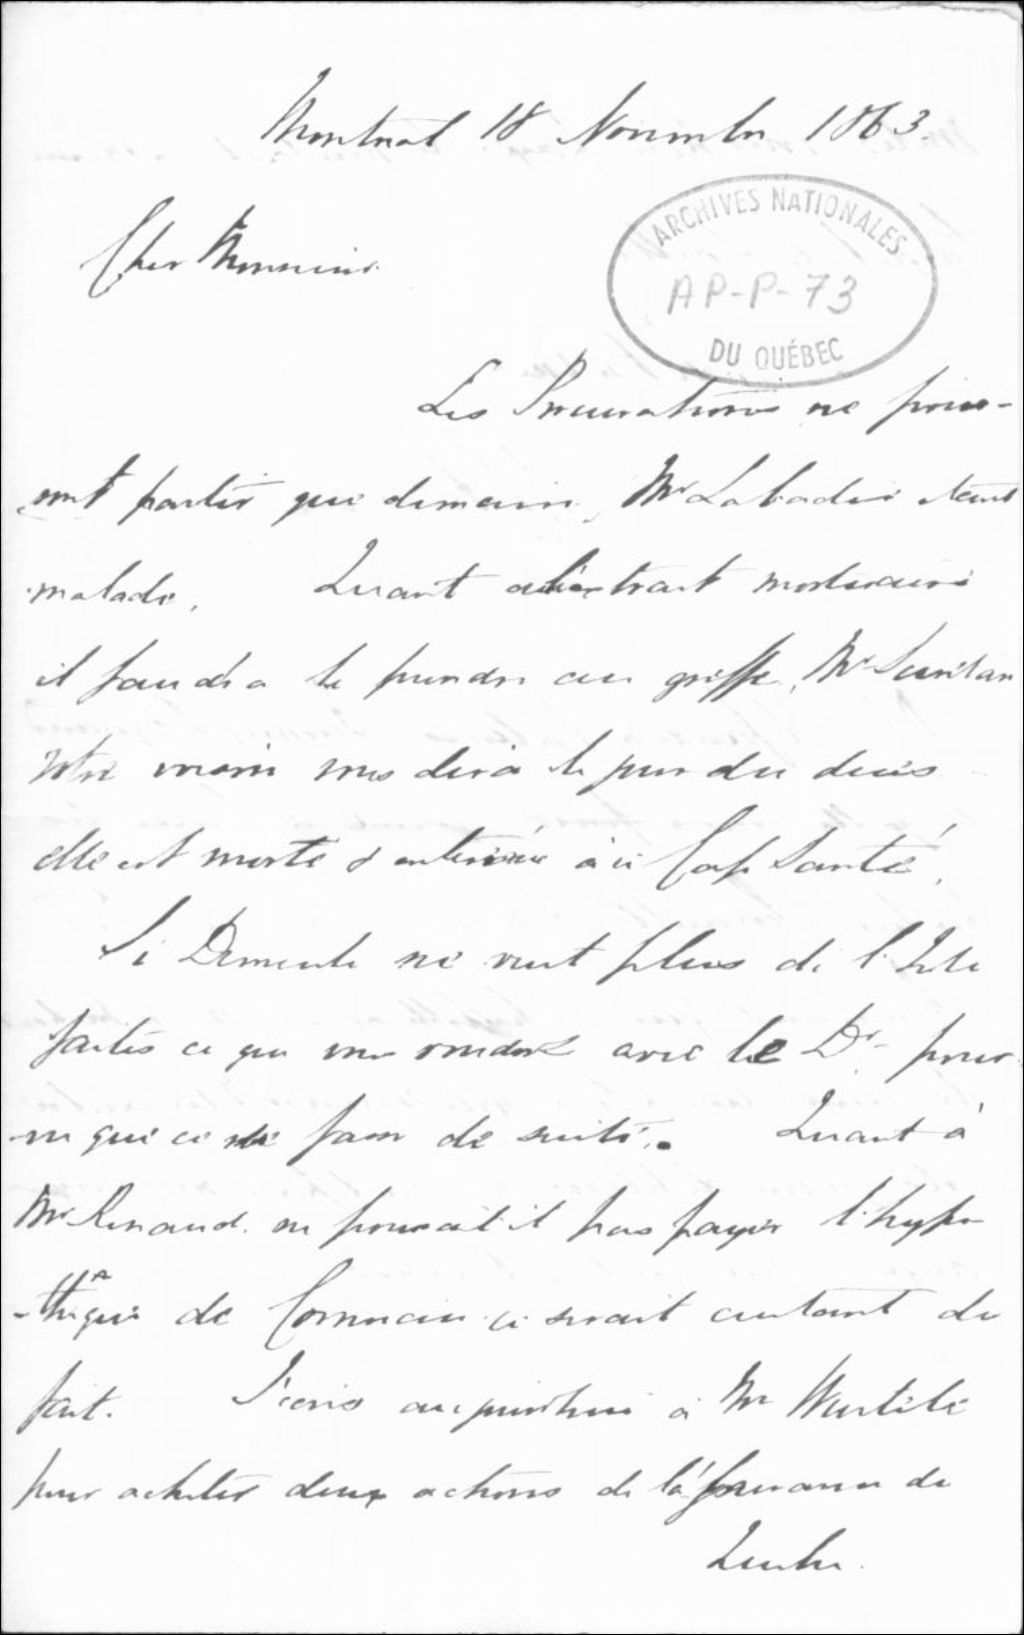 Montreal 18 Novembre 1863.
ARCHIVES NATIONALES
AP-P-73
DU QUÉBEC
Cher Monsieur
Les Procurations ne pour-
ront partir que demain, Mr Labadie étant
malade. Quant à l'extrait mortuaire
il faudra le prendre au greffe, Mr
votre voisin vous dira le jour du décès
elle est morte & enterrée au Cap Santé.
Si ne veut plus de l'Isle
faites ce que vous voudrez avec le Dr pour-
vu que ce se fasse de suite. Quant à
Mr Renaud ne pourrait il pas payer l'hypo-
-thèque de ce serait autant de
fait. J'écris aujourd'hui à Mr Wurtele
pour acheter deux actions de l'assurance de
Quebec.